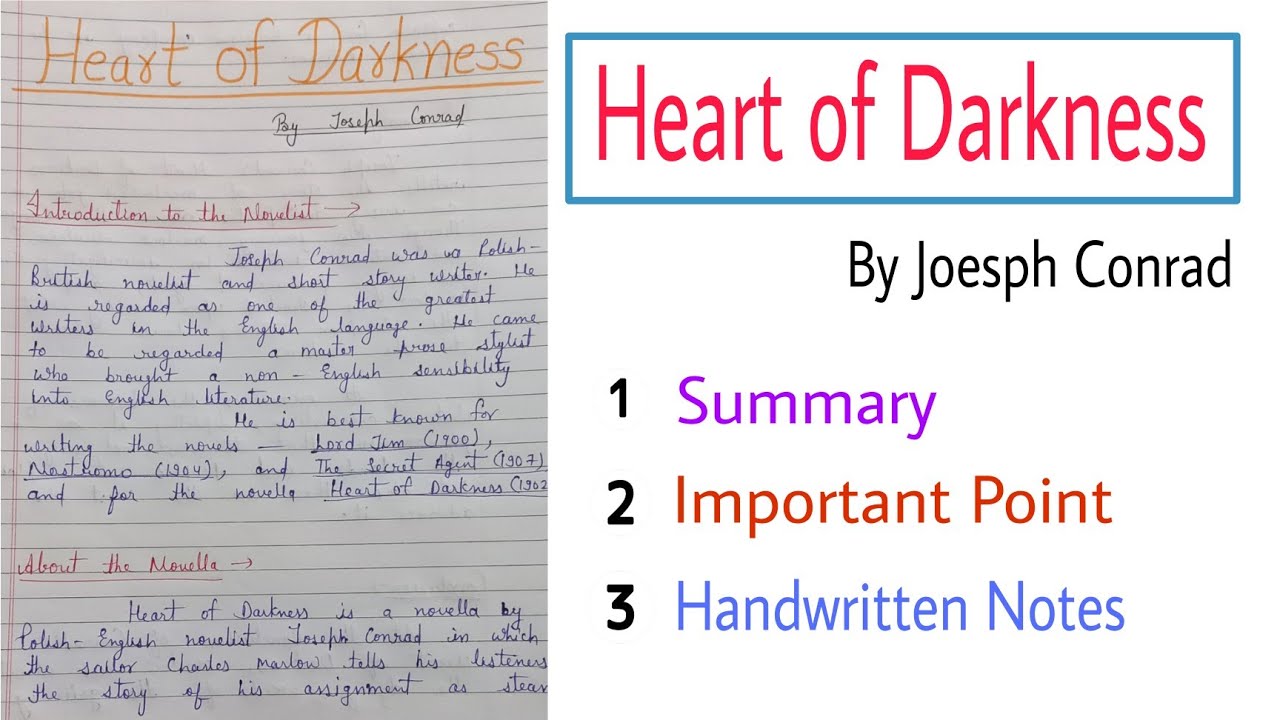 Heart of Darkness
By Joseph Conrad
Introduction to the Novelist →
Joseph Conrad was a Polish-
British novelist and short story writer. He
is regarded as one of the greatest
writers in the English language. He came
to be regarded a master prose stylist
who brought a non-English sensibility
into English literature.
He is best known for
writing the novels — Lord Jim (1900),
Nostromo (1904), and The Secret Agent (1907)
and for the novella Heart of Darkness (1902
About the Novella →
Heart of Darkness is a novella by
Polish-English novelist Joseph Conrad in which
the sailor Charles Marlow tells his listeners
the story of his assignment as steam
Heart of Darkness
By Joesph Conrad
1 Summary
2 Important Point
3 Handwritten Notes